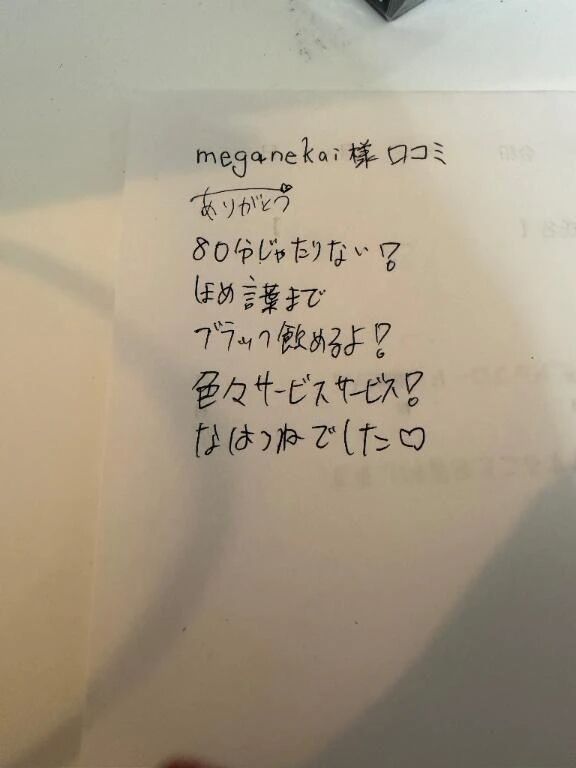 meganekai様口コミ
ありがとう
80分じゃたりない!
ほめ言葉まで
ブラック飲めるよ!
色々サービスサービス!
なはつねでした♡